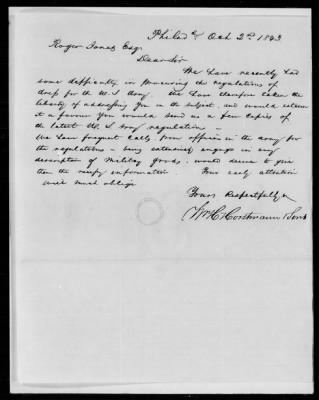 Philad a Oct 2nd 1843
Roger Jones Esq.
Dear Sir
We have recently had
some difficulty in procuring the regulations of
dress for the U.S Army. We have therefore taken the
liberty of addressing you on the subject, and would esteem
it a favour you would send us a few copies of
the latest U.S Army regulation –
We have frequent calls from officers in the army for
the regulations – being extensively engaged in every
description of Military goods, would desire to give
them the necessary information. Your early attention
will much oblige
Yours Respectfully
Wm H Horstmann & Sons